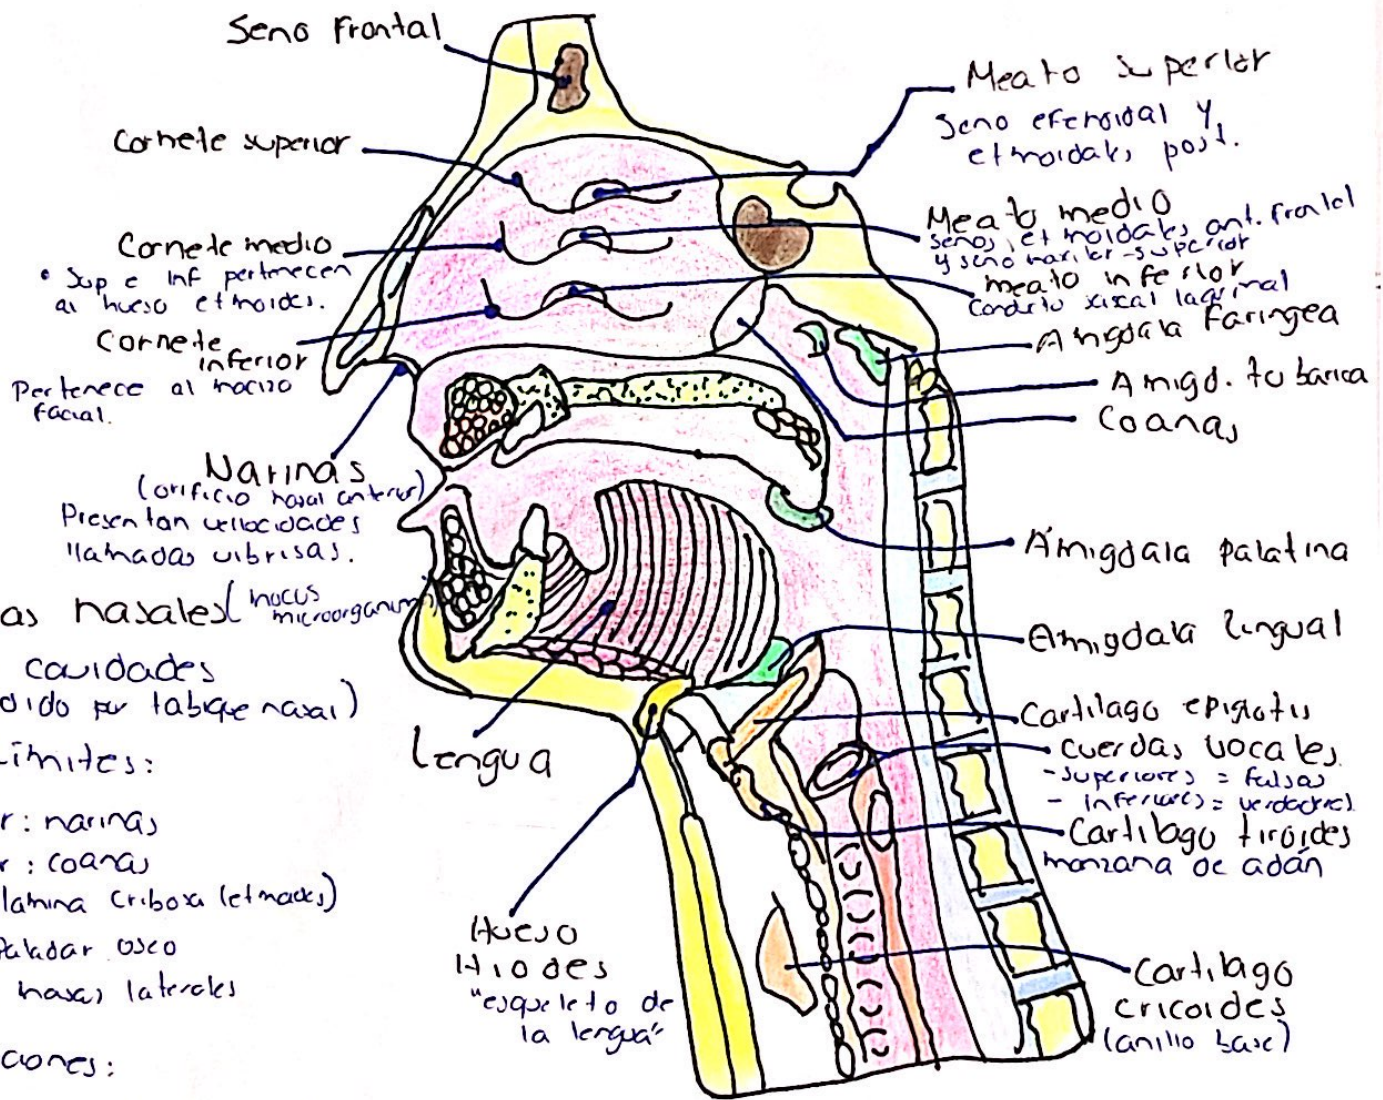 Seno Frontal
Cornete superior
Cornete medio
• Sup e Inf pertenecen
al hueso etmoides.
Cornete
inferior
Pertenece al macizo
facial.
Narinas
(orificio nasal anterior)
Presentan vellocidades
llamadas vibrisas.
as nasales (mocus
microorganism)
cavidades
dido por tabique nasal)
Límites:
r: narinas
r: coanas
lamina cribosa (etmoides)
Paladar oseo
masas laterales
ciones:
Lengua
Hueso
Hiodes
"esqueleto de
la lengua"
Meato superior
Seno efenoidal y
etmoidales post.
Meato medio
senos etmoidales ant. frontal
y seno maxilar-superior
meato inferior
Conducto lagrimal
Amigdala Faringea
Amigd. tubarica
Coanas
Ámigdala palatina
Amigdala lingual
Cartilago epiglotis
cuerdas vocales.
- superiores = falsas
- inferiores = verdaderas
Cartilago tiroides
manzana de adán
Cartilago
cricoides
(anillo base)